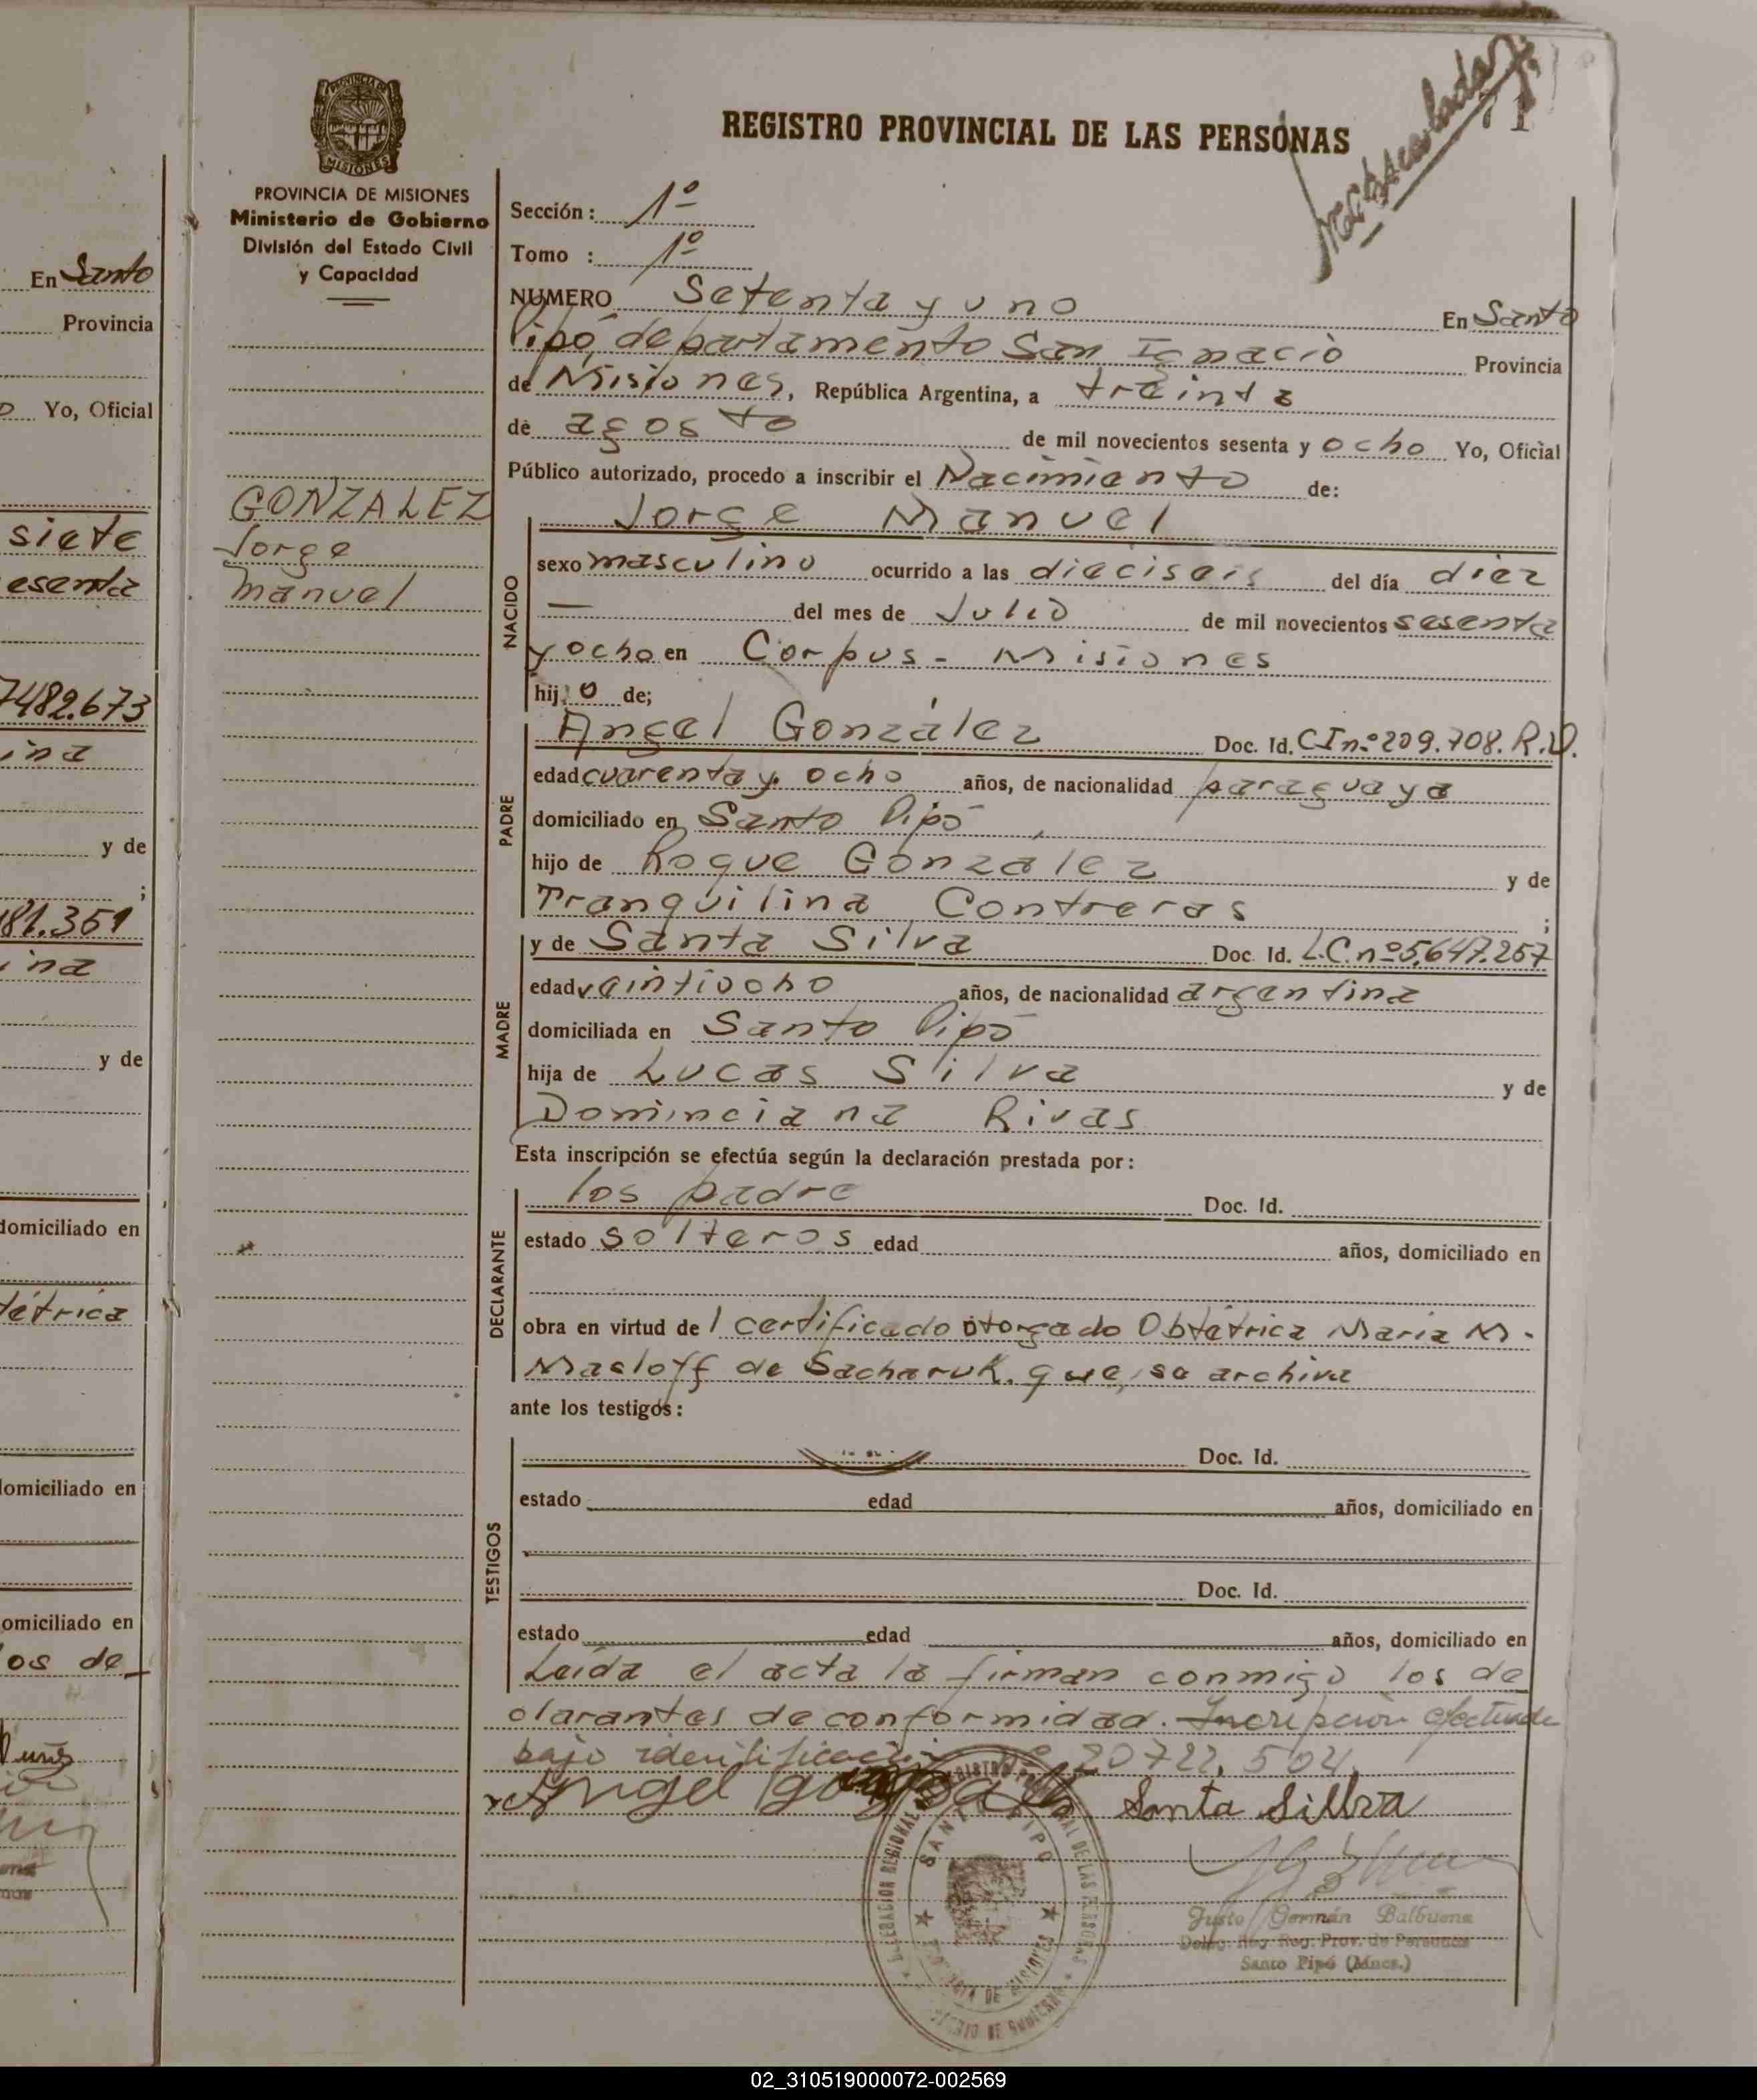 En Santo
Provincia
o Yo, Oficial
siete
esenta
7482.673
ina
y de
;
81.351
ina
y de
domiciliado en
tétrica
domiciliado en
omiciliado en
os de
PROVINCIA DE MISIONES
Ministerio de Gobierno
División del Estado Civil
y Capacidad
GONZALEZ
Jorge
Manuel
REGISTRO PROVINCIAL DE LAS PERSONAS
71
Sección: 1º
Tomo : 1º
NUMERO Setenta y uno En Santo
Pipó, departamento San Ignacio Provincia
de Misiones, República Argentina, a treinta
de agosto de mil novecientos sesenta y ocho Yo, Oficial
Público autorizado, procedo a inscribir el Nacimiento de:
NACIDO
Jorge Manuel
sexo masculino ocurrido a las dieciseis del día diez
— del mes de Julio de mil novecientos sesenta
y ocho en Corpus - Misiones
hijo de;
PADRE
Angel González Doc. Id. CI nº 209.708. R.P.
edad cuarenta y ocho años, de nacionalidad paraguaya
domiciliado en Santo Pipó,
hijo de Roque González y de
Tranquilina Contreras ;
MADRE
y de Santa Silva Doc. Id. L.C. nº 5.647.257
edad veintiocho años, de nacionalidad argentina
domiciliada en Santo Pipó
hija de Lucas Silva y de
Dominciana Rivas
Esta inscripción se efectúa según la declaración prestada por:
DECLARANTE
los padre Doc. Id.
estado solteros edad años, domiciliado en
obra en virtud de 1 certificado otorgado Obtétrica Maria M.
Masloff de Sacharuk. que se archiva
ante los testigos:
TESTIGOS
Doc. Id.
estado edad años, domiciliado en
Doc. Id.
estado edad años, domiciliado en
Leída el acta la firman conmigo los de
clarantes de conformidad. Incripción efectuada
bajo identificación nº 20722.504.
Angel Santa Sillva
SANTO PIPO
Justo Germán Balbuena
Deleg. Reg. Reg. Prov. de Personas
Santo Pipó (Mnes.)
02_310519000072-002569